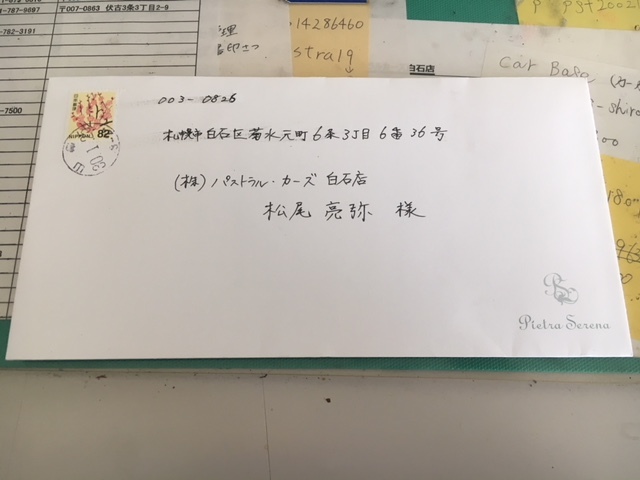 -787-9697
〒007-0863 伏古3条3丁目2-9
-782-3191
-7500
14286460
stra19
白石店
Car Base
003-0826
札幌市白石区菊水元町6条3丁目6番36号
(株)パストラル・カーズ 白石店
松尾 亮弥 様
NIPPON 82
PS
Pietra Serena